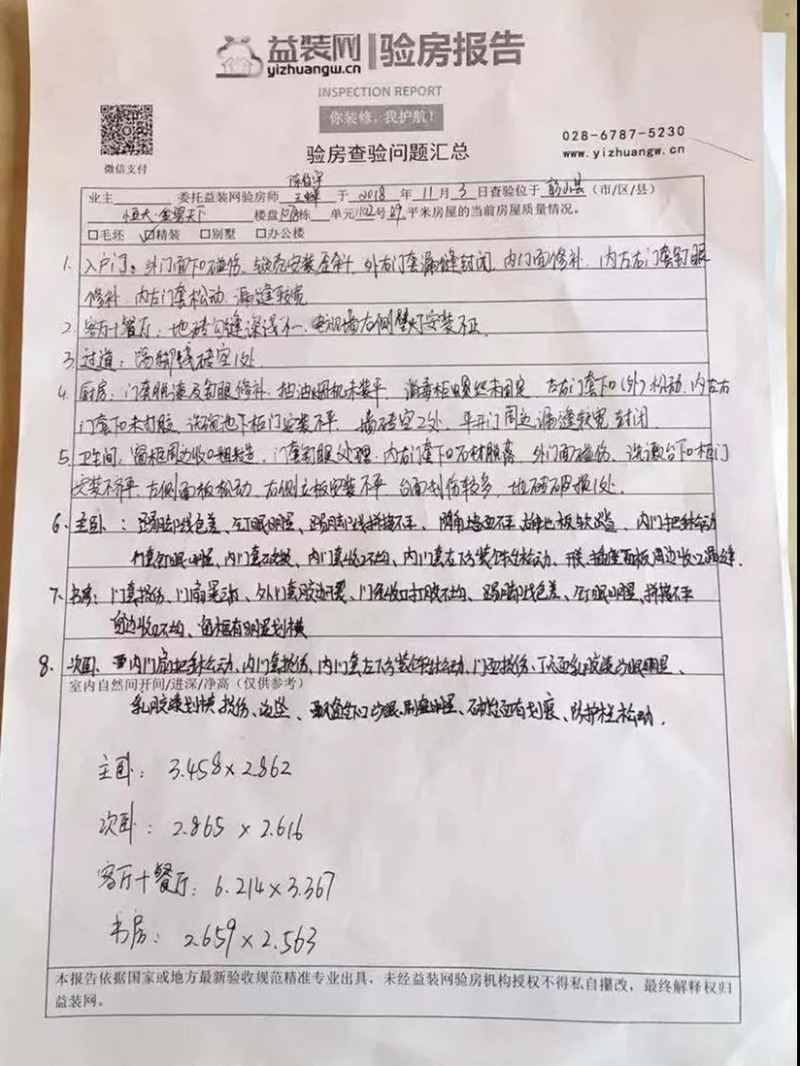 益装网 验房报告
yizhuangw.cn
INSPECTION REPORT
你装修，我护航！
028-6787-5230
www.yizhuangw.cn
微信支付
验房查验问题汇总
业主 委托益装网验房师 于 2018 年 11 月 3 日查验位于 彭山县 （市/区/县）
恒大·金碧天下 楼盘 栋 单元1102号89平米房屋的当前房屋质量情况。
□毛坯 ☑精装 □别墅 □办公楼
1. 入户门：外门面下口磕伤、锁壳安装歪斜 外右门套漏缝封闭、内门面修补 内左右门套钉眼
修补、内右门套松动、漏缝较宽
2. 客厅+餐厅：地砖勾缝深浅不一、电视墙右侧壁灯安装不正
3. 过道：踢脚线砖空1处
4. 厨房：门套脱漆及钉眼修补、抽油烟机未装平、消毒柜螺丝未固定、左右门套下口（外）松动、内左右
门套下口未打胶、洗碗池下柜门安装不平、墙砖空2处、平开门周边漏缝较宽封闭
5. 卫生间：窗框周边收口粗糙、门套钉眼处理、内右门套下口石材脱落 外门面磕伤、洗漱台下口柜门
安装不平、左侧面板松动、右侧立板安装不平 台面划伤较多、地砖破损1处
6. 主卧：踢脚线色差、钉眼明显、踢脚线拼接不平、阴角墙面不正 地板 、内门把手松动
门套钉眼明显、内门套破损、内门套收口不均、内门套左下方 松动、开关、插座面板周边收口漏缝
7. 书房：门套损伤、门扇晃动、外门套胶边开裂、门套收口打胶不均、踢脚线色差、钉眼明显、拼接不平
窗边收口不均、窗框有明显划横
8. 次卧、 内门扇把手松动、内门套损伤、内门套左下方 松动、门面损伤、顶面乳胶漆 明显、
室内自然间开间/进深/净高（仅供参考）
乳胶漆划横损伤、 明显、 面有划痕、防护栏松动、
主卧：3.458×2.862
次卧：2.865×2.616
客厅+餐厅：6.214×3.367
书房：2.659×2.563
本报告依据国家或地方最新验收规范精准专业出具，未经益装网验房机构授权不得私自撰改，最终解释权归
益装网。